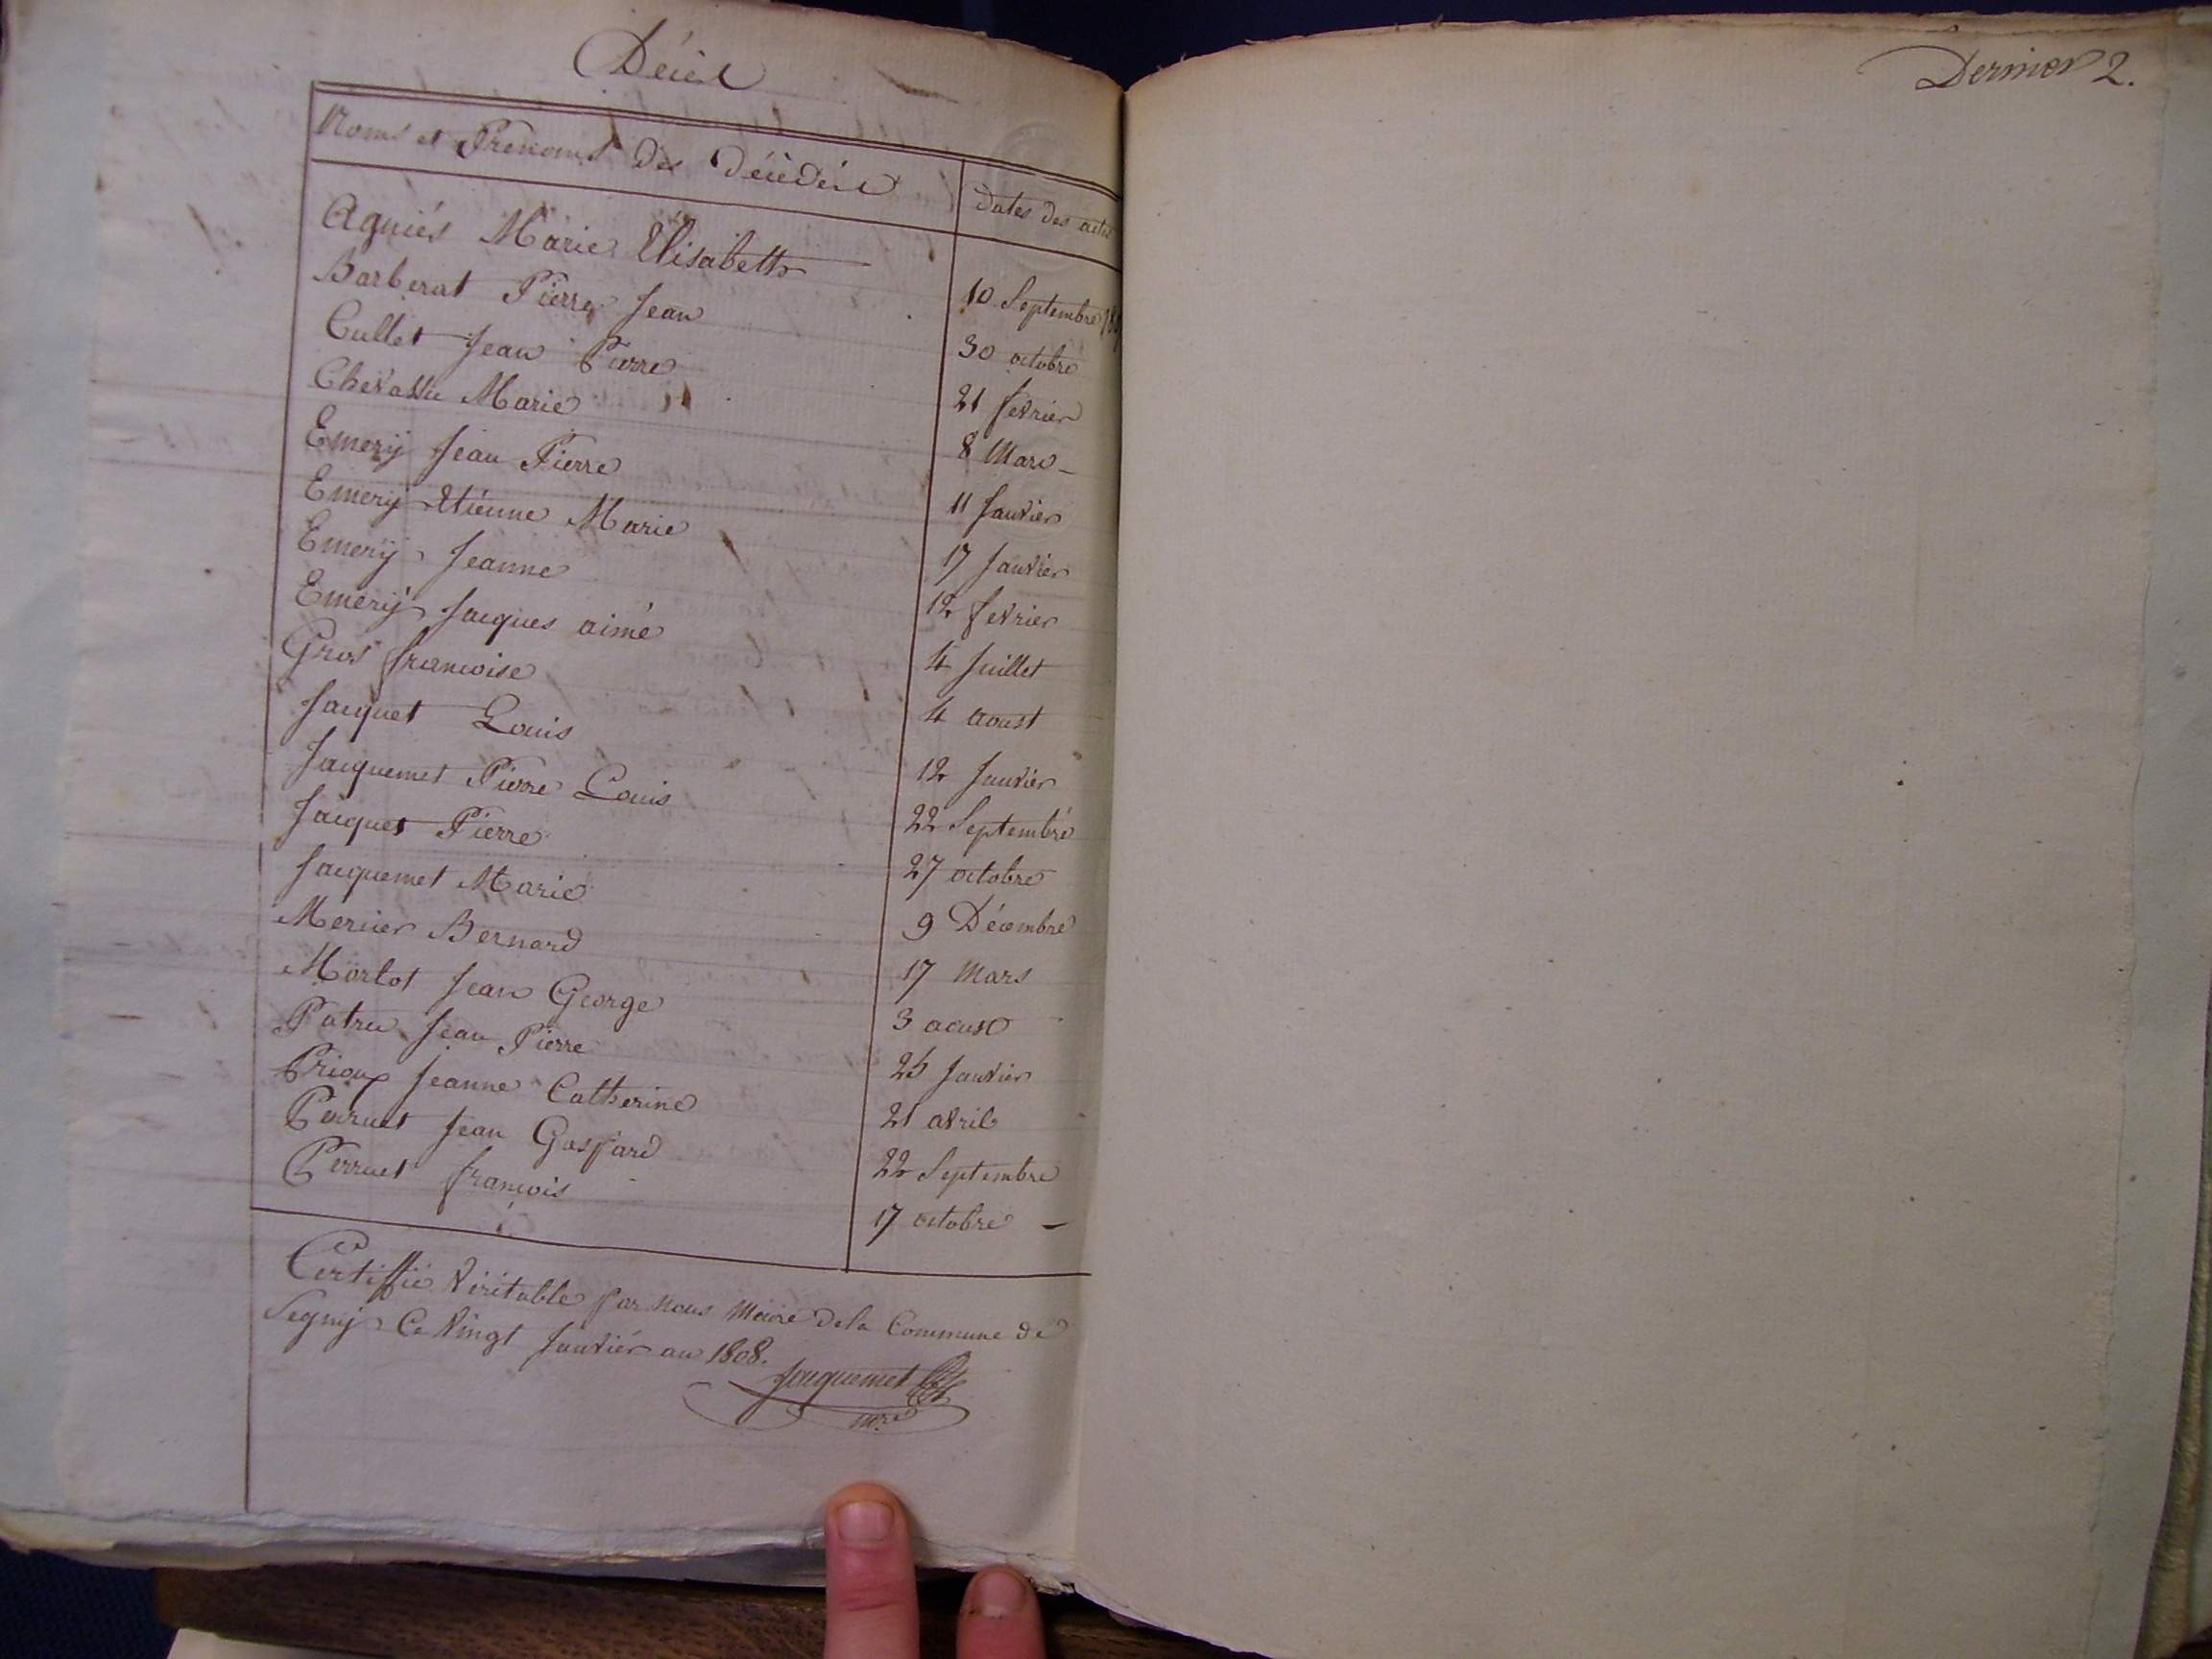 Décès
Noms et Prenoms des Décédés Dates des actes
Agniés Marie Elisabeth 10 Septembre
Barberat Pierre Jean 30 octobre
Cullet Jean Pierre 21 fevrier
Chevassu Marie 8 Mars
Emerÿ Jean Pierre 11 Janvier
Emerÿ Etiénne Marie 17 Janvier
Emerÿ Jeanne 12 fevrier
Emerÿ Jacques aimé 4 Juillet
Gros francoise 4 aoust
Jacquet Louis 12 Janvier
Jacquemet Pierre Louis 22 Septembre
Jacquet Pierre 27 octobre
Jacquemet Marie 9 Décembre
Mercier Bernard 17 Mars
Morlot Jean George 3 aoust
Patru Jean Pierre 25 Janvier
Prioux Jeanne Catherine 21 avril
Perruet Jean Gaspard 22 Septembre
Perruet francois 17 octobre
Certiffié Véritable par nous Maire de la Commune de
Segny Ce Vingt Janviér an 1808.
Jacquemet
mre
Dernier 2.